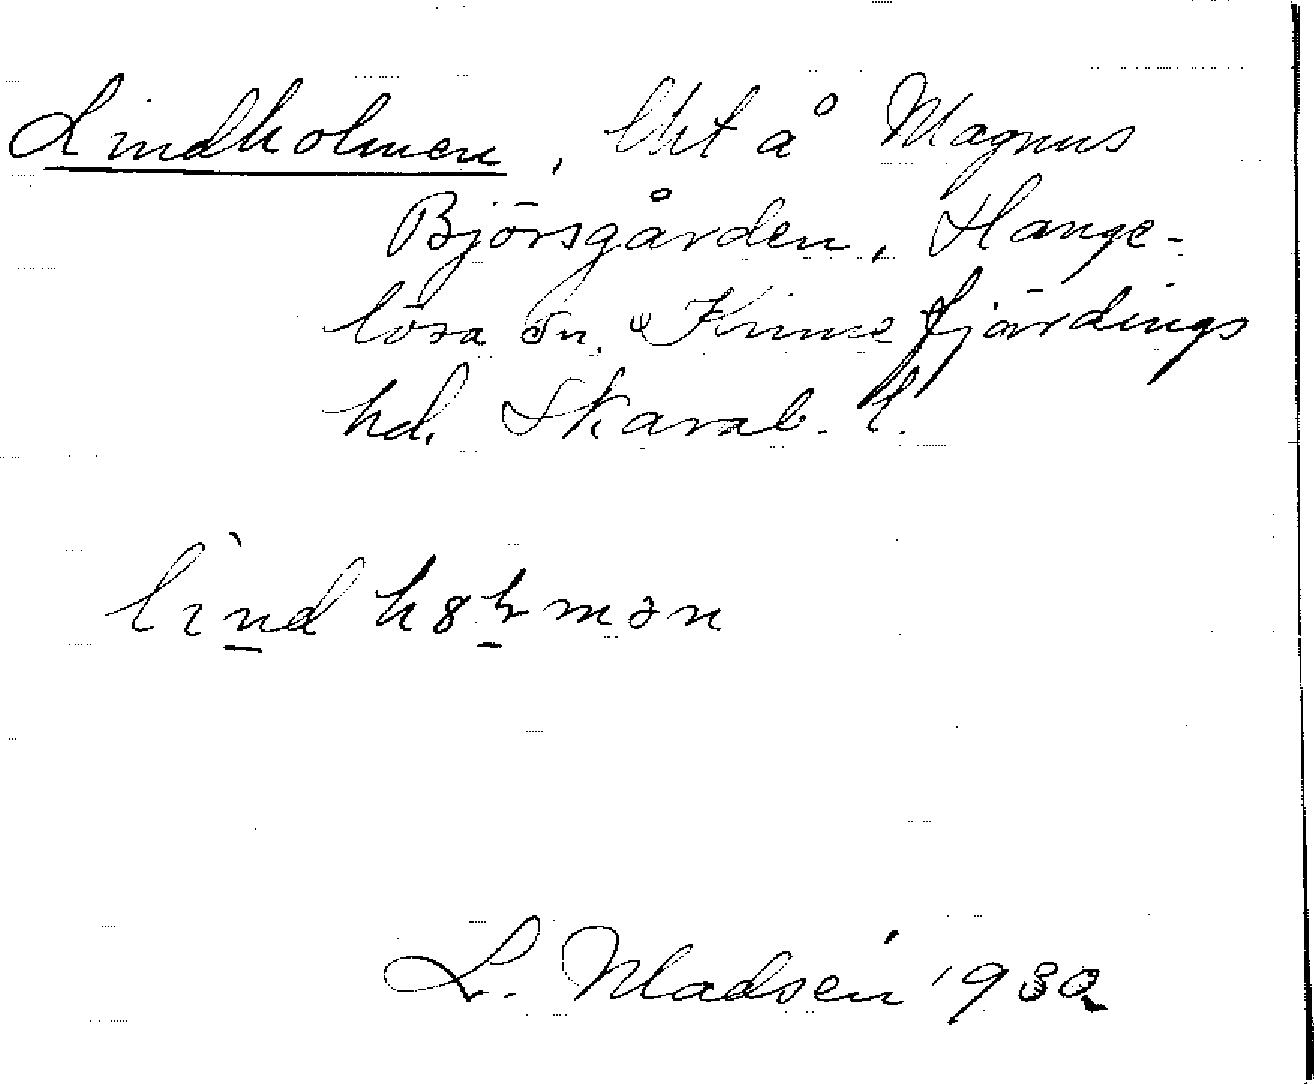 Lindholmen, lht å Magnus
Björsgården, Hange-
lösa sn, Kinnefjärdings
hd. Skarab. l.
lìnd hꞷļmən
L. Madsén 1932